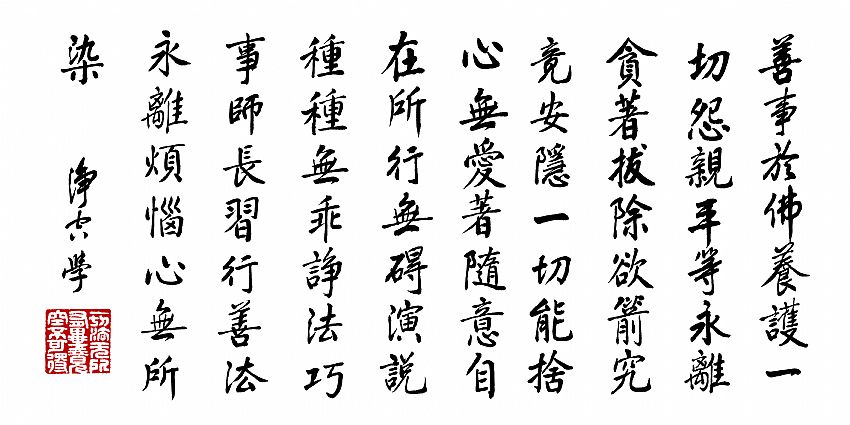 善事於佛養護一
切怨親平等永離
貪著拔除欲箭究
竟安隱一切能捨
心無愛著隨意自
在所行無碍演説
種種無乖諍法巧
事師長習行善法
永離煩惱心無所
染
淨空學